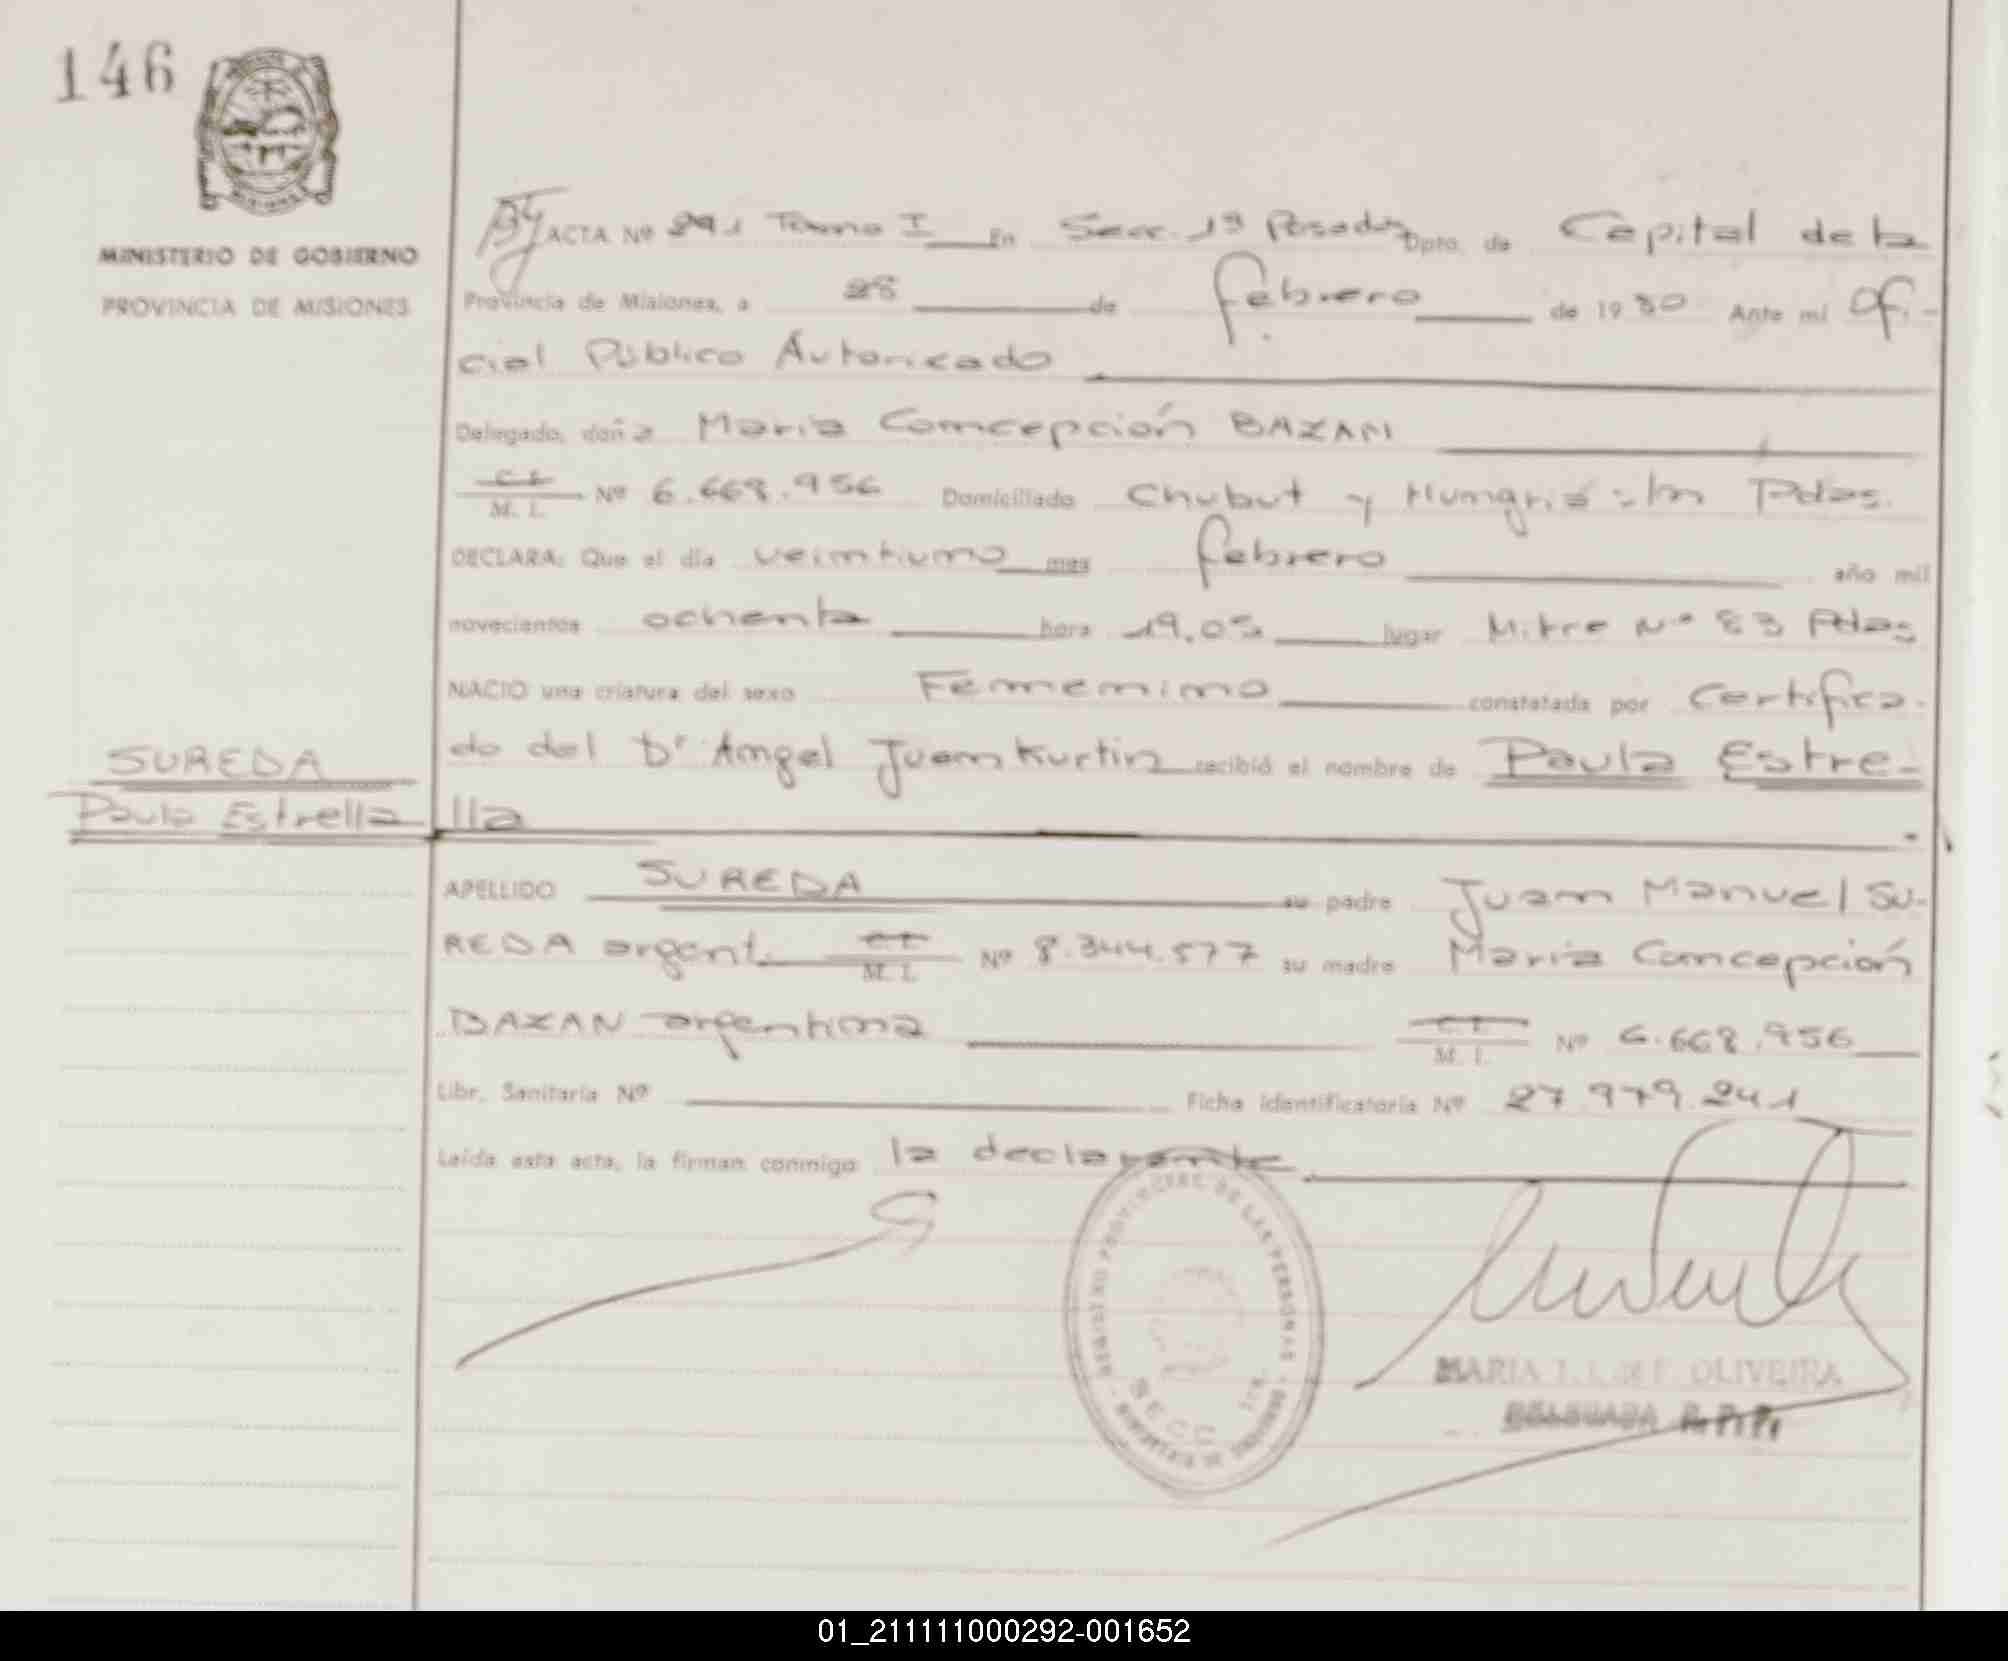 146
MINISTERIO DE GOBIERNO
PROVINCIA DE MISIONES
ACTA Nº 291 Tomo I En Secc. 1ª Posadas Dpto. de Capital de la
Provincia de Misiones, a 28 de febrero de 1980 Ante mí Ofi-
cial Público Autorizado
Delegado, doña Maria Concepción BAZAN
C.I. M. I. Nº 6.668.956 Domiciliado Chubut y Hungría Pdas.
DECLARA: Que el día veintiuno mes febrero año mil
novecientos ochenta hora 19.05 lugar Mitre Nº 83 Pdas
NACIO una criatura del sexo Femenino constatada por Certifica-
do del Dr Angel Juan Kurtin recibió el nombre de Paula Estre-
lla
SUREDA
Paula Estrella
APELLIDO SUREDA su padre Juan Manuel SU-
REDA argent. C.I. M. I. Nº 8.344.577 su madre Maria Concepción
BAZAN argentina C.I. M. I. Nº 6.668.956
Libr. Sanitaria Nº Ficha identificatoria Nº 27.979.241
Leída esta acta, la firman conmigo la declarante.
REGISTRO PROVINCIAL DE LAS PERSONAS
SECC. 1ra.
MARIA OLIVEIRA
DELEGADA R.P.P.
01_211111000292-001652